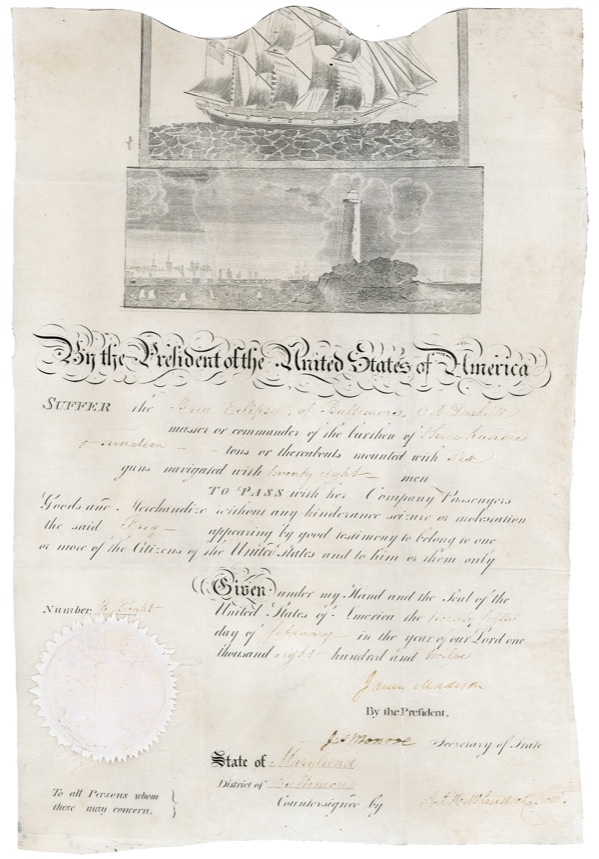 By the President of the United States of America
SUFFER the Brig Eclipse of Baltimore, C A
master or commander of the burthen of three hundred
& nineteen tons or thereabouts mounted with six
guns navigated with twenty eight men
TO PASS with her Company Passengers
Goods and Merchandize without any hinderance seizure or molestation
the said Brig appearing by good testimony to belong to one
or more of the Citizens of the United States and to him or them only
Given under my Hand and the Seal of the
United States of America the twenty
day of february in the year of our Lord one
thousand eight hundred and twelve
Number Eight
James Madison
By the President.
Jas Monroe Secretary of State
State of Maryland
District of Baltimore
Countersigned by
To all Persons whom
these may concern.